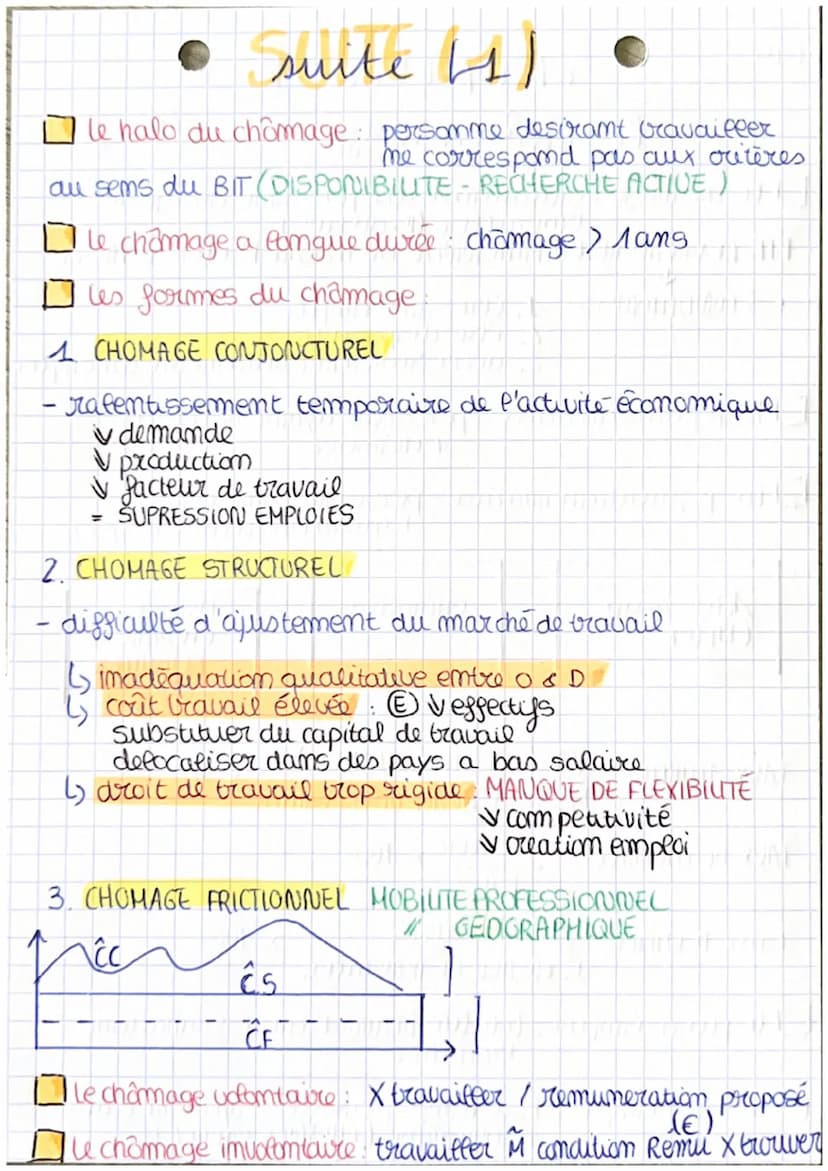 suite (1)
le halo du chômage : personne desirant travailler
ne correspond pas aux critères
au sens du BIT (DISPONIBILITE - RECHERCHE ACTIVE)
le chômage a longue durée : chômage > 1 ans
les formes du chômage :
1 CHOMAGE CONJONCTUREL
- ralentissement temporaire de l'activité économique
↘ demande
↘ production
↘ facteur de travail
= SUPRESSION EMPLOIES
2. CHOMAGE STRUCTUREL
- difficulté d'ajustement du marché de travail
↳ inadéquation qualitative entre O & D
↳ coût travail élevée : Ⓔ ↘ effectifs
substituer du capital de travail
delocaliser dans des pays a bas salaire
↳ droit de travail trop rigide : MANQUE DE FLEXIBILITÉ
↘ compétitivité
↘ creation emploi
3. CHOMAGE FRICTIONNEL MOBILITE PROFESSIONNEL
// GÉOGRAPHIQUE
ĈC
ĈS
ĈF
le chômage volontaire : X travailler / remuneration proposé
(€)
le chômage involontaire : travailler M̃ condition Remu X trouver